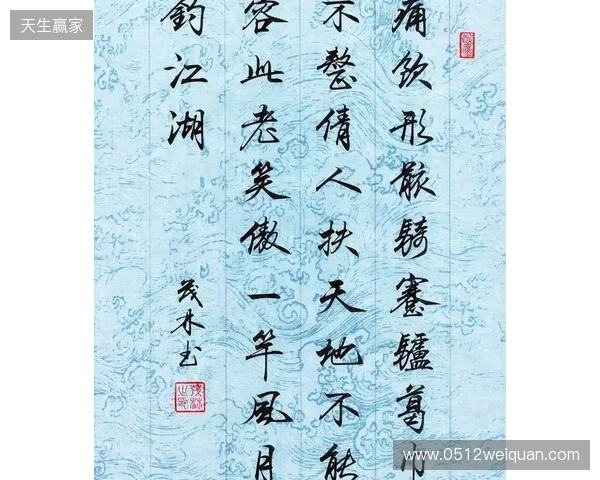 天生赢家
痛飲形骸騎蹇驢葛巾
不整倩人扶天地不能
容此老笑傲一竿風月
釣江湖
茂林书
www.0512weiquan.com